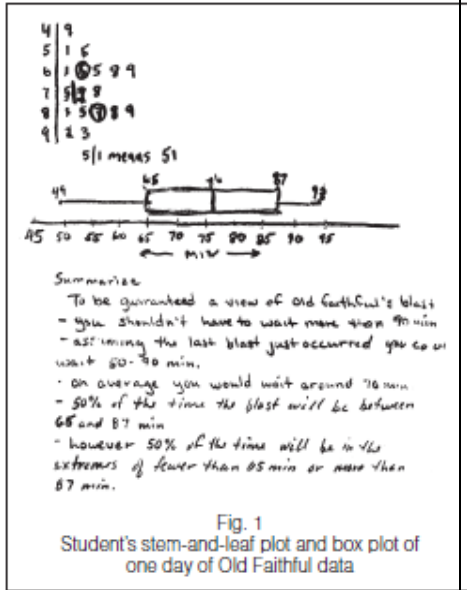 4 | 9
5 | 1 6
6 | 1 5 5 8 9
7 | 5 8 8
8 | 5 7 8 9
9 | 3
5/1 means 51
49 65 76 87 93
45 50 55 60 65 70 75 80 85 90 95
← min →
Summarize
To be guranteed a view of old faithful's blast
- you shouldn't have to wait more than 90 min
- assuming the last blast just occurred you
wait 50-90 min.
- on average you would wait around 76 min
- 50% of the time the blast will be between
65 and 87 min
- however 50% of the time will be in the
extremes of fewer than 65 min or more than
87 min.
Fig. 1
Student's stem-and-leaf plot and box plot of
one day of Old Faithful data